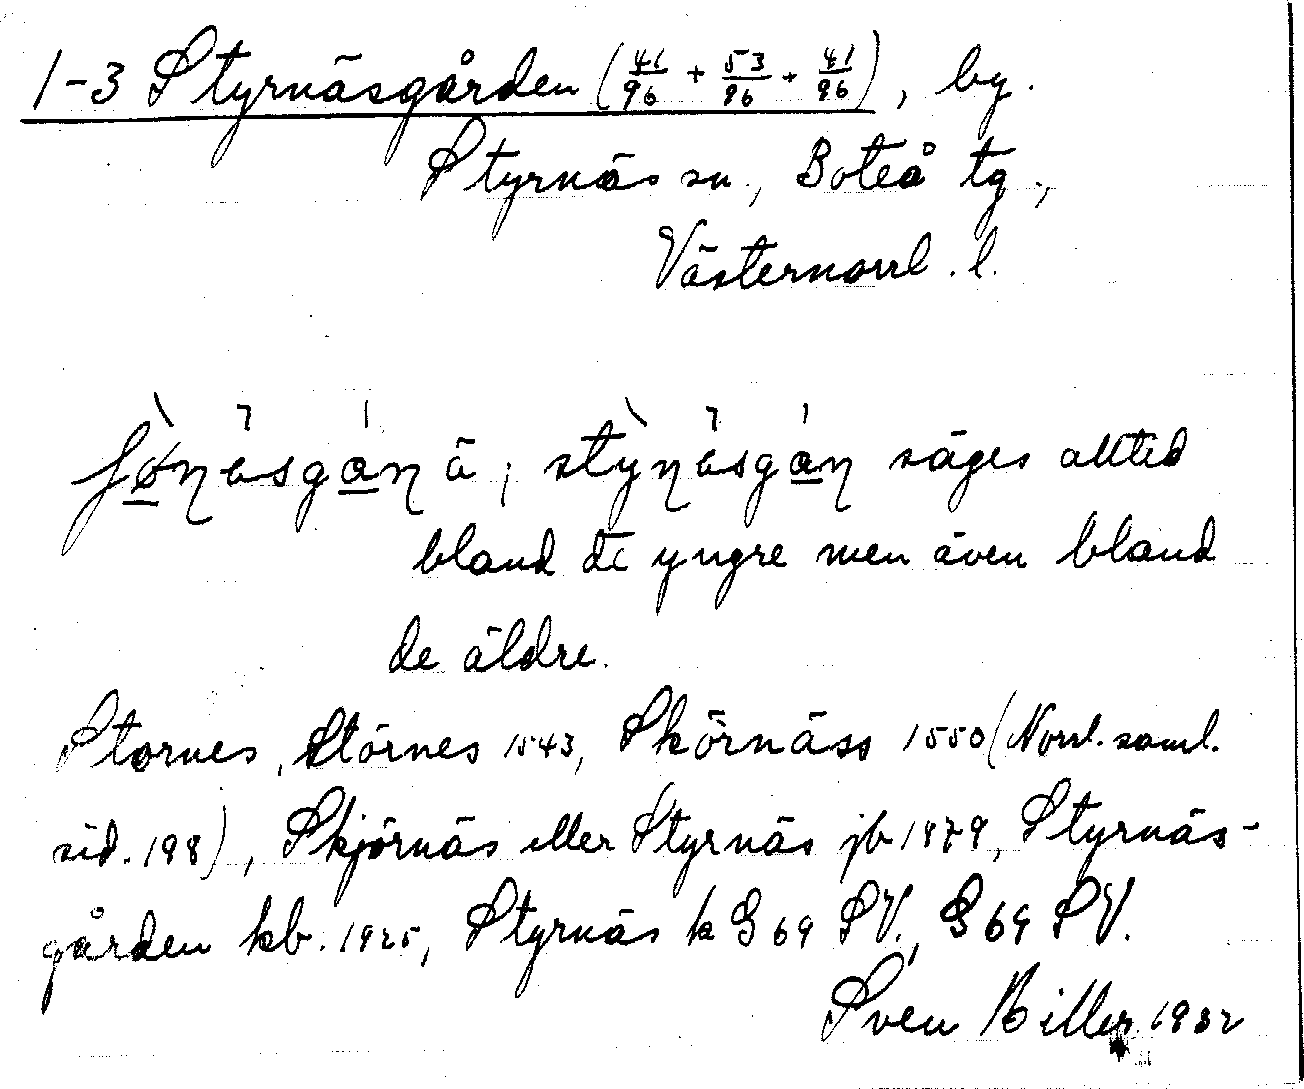 1-3 Styrnäsgården (41/96 + 53/96 + 41/96), by.
Styrnäs sn., Boteå tg.,
Västernorrl. l.
säges alltid
bland de yngre men även bland
de äldre.
Stornes, Störnes 1543, Skörnäss 1550 (Norrl. saml.
sid. 198), Skjörnäs eller Styrnäs jb 1879, Styrnäs-
gården kb. 1925, Styrnäs k G 69 SV., G 69 SV.
Sven Biller 1932